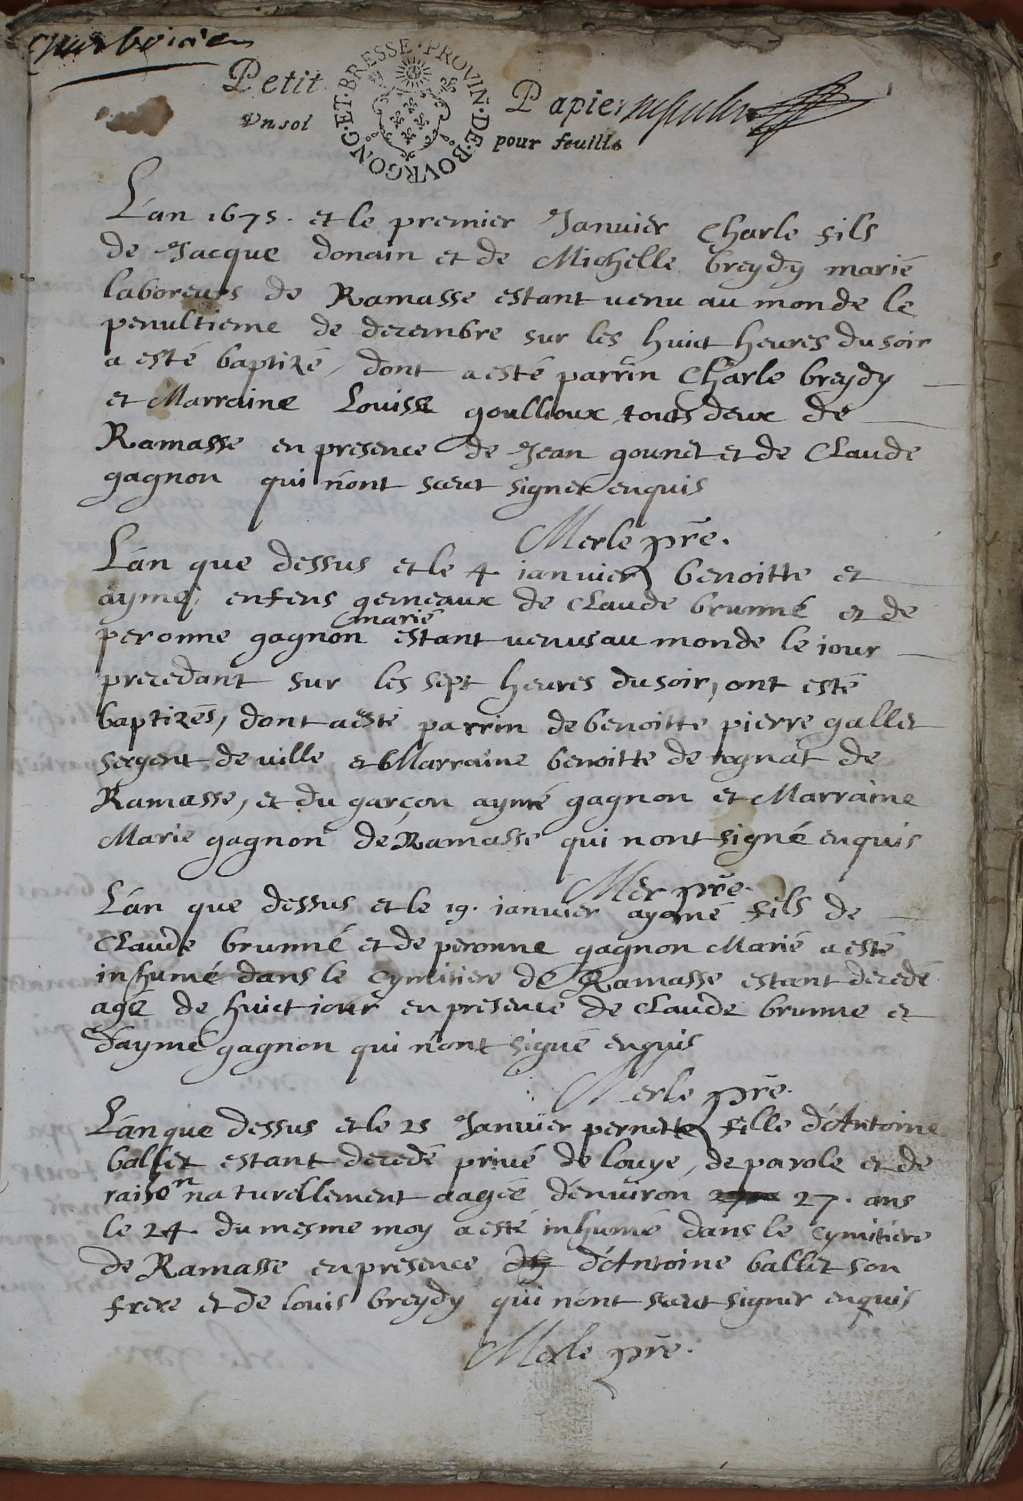 Petit Papier
BOVRGONG·ET·BRESSE·PROVIN·DE
Vn sol pour feuille
L'an 1675. et le premier Janvier Charle fils
de Jacque donain et de Michelle breydy marié
laboreurs de Ramasse estant venu au monde le
penultieme de decembre sur les huict heures du soir
a esté baptizé, dont a esté parrin Charle breydy
et Marraine Louisse goullioux touts deux de
Ramasse en presence de Jean gounet et de Claude
gagnon qui n'ont sceut signer enquis
Merle pre.
L'an que dessus et le 4 ianvier benoitte et
aymé, enfens gemeaux de Claude brunné et de
marié
peronne gagnon estant venus au monde le iour
precedant sur les sept heures du soir, ont esté
baptizés, dont a esté parrin de benoitte pierre gallet
sergent de ville et Marraine benoitte de tognat de
Ramasse, et du garçon aymé gagnon et Marraine
Marie gagnon de Ramasse qui n'ont signé enquis
Mer pre.
L'an que dessus et le 19. ianvier aymé fils de
Claude brunné et de peronne gagnon Marié a esté
inhumé dans le cymitiere de Ramasse estant decedé
agé de huict iour en presence de Claude brunne et
d'aymé gagnon qui n'ont signé enquis
Merle pre.
L'an que dessus et le 25 Janvier pernette fille d'Antoine
ballet estant decedé privé de l'ouye, de parole et de
raison naturellement aagée d'environ 27. ans
le 24 du mesme moy a esté inhumé dans le cymitiere
de Ramasse en presence d'Antoine ballet son
frere et de louis breydy qui n'ont sceut signer enquis
Merle pre.